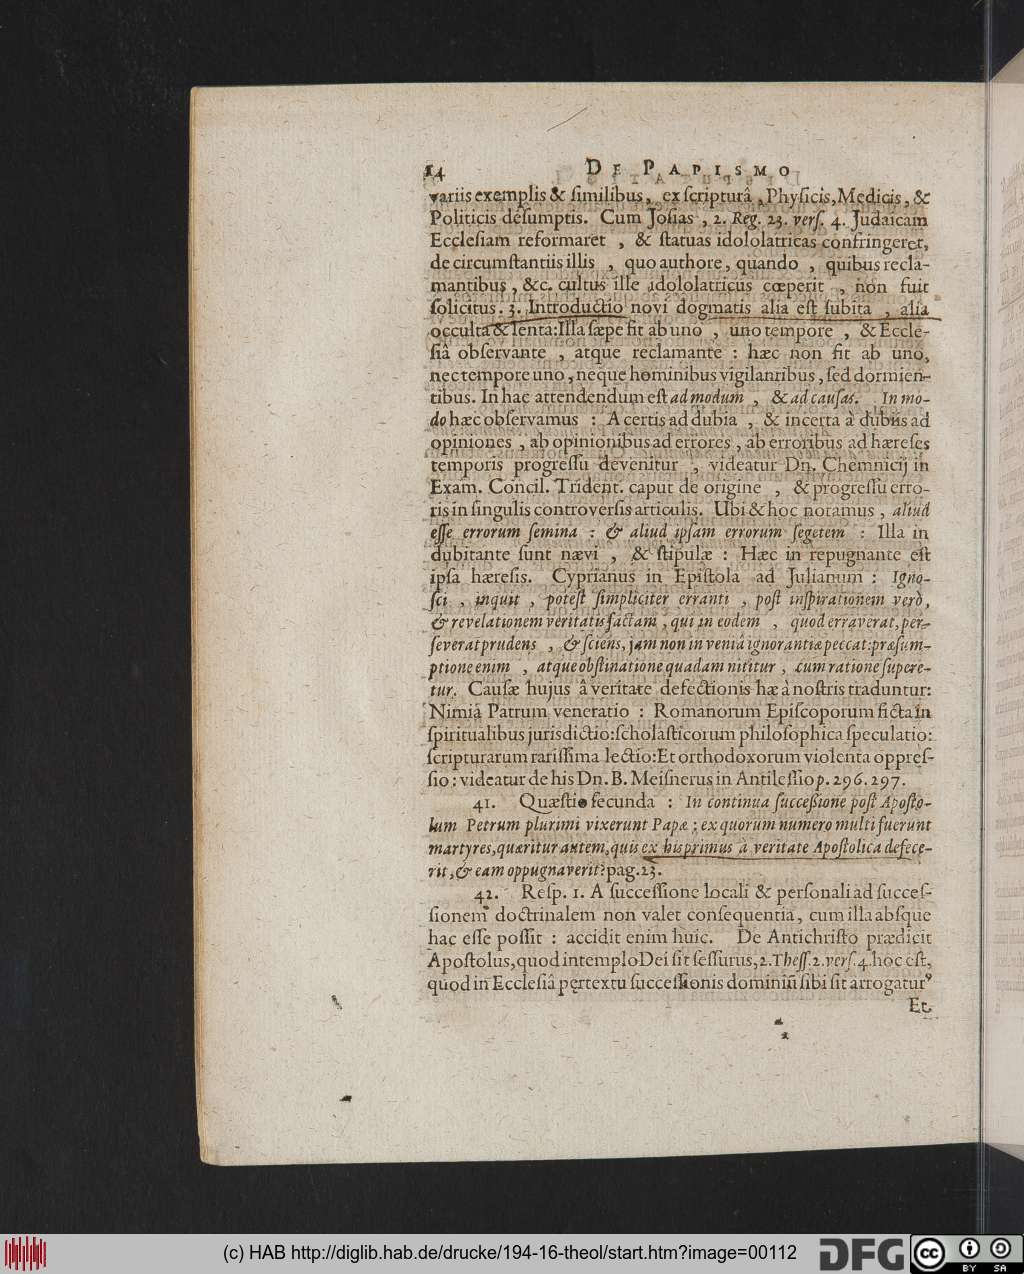 14 DE PAPISMO
variis exemplis & ſimilibus, ex ſcripturâ, Phyſicis, Medicis, &
Politicis deſumptis. Cum Joſias, 2. Reg. 23. verſ. 4. Judaicam
Eccleſiam reformaret, & ſtatuas idololatricas confringeret,
de circumſtantiis illis, quo authore, quando, quibus recla-
mantibus, &c. cultus ille idololatricus cœperit, non fuit
ſolicitus. 3. Introductio novi dogmatis alia eſt ſubita, alia
occulta & lenta: Illa ſæpe fit ab uno, uno tempore, & Eccle-
ſiâ obſervante, atque reclamante: hæc non fit ab uno,
nec tempore uno, neque hominibus vigilantibus, ſed dormien-
tibus. In hac attendendum eſt ad modum, & ad cauſas. In mo-
do hæc obſervamus: A certis ad dubia, & incerta à dubiis ad
opiniones, ab opinionibus ad errores, ab erroribus ad hæreſes
temporis progreſſu devenitur, videatur Dn. Chemnicij in
Exam. Concil. Trident. caput de origine, & progreſſu erro-
ris in ſingulis controverſis articulis. Ubi & hoc notamus, aliud
eſſe errorum ſemina: & aliud ipſam errorum ſegetem: Illa in
dubitante ſunt nævi, & ſtipulæ: Hæc in repugnante eſt
ipſa hæreſis. Cyprianus in Epiſtola ad Julianum: Igno-
ſci, inquit, poteſt ſimpliciter erranti, poſt inſpirationem verò,
& revelationem veritatis factam, qui in eodem, quod erraverat, per-
ſeverat prudens, & ſciens, jam non in veniâ ignorantiæ peccat: præſum-
ptione enim, atque obſtinatione quadam nititur, cum ratione ſupere-
tur. Cauſæ hujus â veritate defectionis hæ à noſtris traduntur:
Nimia Patrum veneratio: Romanorum Epiſcoporum ficta in
ſpiritualibus jurisdictio: ſcholaſticorum philoſophica ſpeculatio:
ſcripturarum rariſſima lectio: Et orthodoxorum violenta oppreſ-
ſio: videatur de his Dn. B. Meiſnerus in Antileſſio p. 296. 297.
41. Quæſtio ſecunda: In continua ſucceßione poſt Apoſto-
lum Petrum plurimi vixerunt Papæ; ex quorum numero multi fuerunt
martyres, quæritur autem, quis ex his primus à veritate Apoſtolica defece-
rit, & eam oppugnaverit? pag. 23.
42. Reſp. 1. A ſucceſſione locali & perſonali ad ſucceſ-
ſionem doctrinalem non valet conſequentia, cum illa abſque
hac eſſe poſſit: accidit enim huic. De Antichriſto prædicit
Apoſtolus, quod in templo Dei ſit ſeſſurus, 2. Theſſ. 2. verſ. 4. hoc eſt,
quod in Eccleſiâ pęrtextu ſucceſſionis dominiũ ſibi ſit arrogaturꝰ
Et
(c) HAB http://diglib.hab.de/drucke/194-16-theol/start.htm?image=00112
DFG cc BY SA